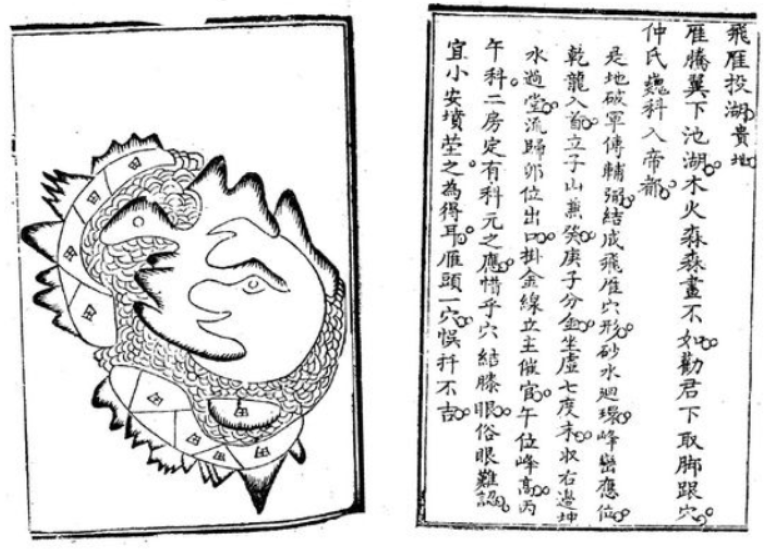 飛雁投湖貴地
雁騰翼下池湖木火森森畫不如勸君下取脚跟穴
仲氏巍科入帝都
是地破軍傳輔弼結成飛雁穴形砂水廻環峰巒應位
乾龍入首立子山兼癸庚子分金坐虛七度末收右邊坤
水過堂流歸卯位出口掛金線立主催官午位峰高丙
午科二房定有科元之應惜乎穴結膝眼俗眼難認
宜小安墳塋之為得耳雁頭一穴悞扦不吉
田
田
田
田
田
田
田
田
田